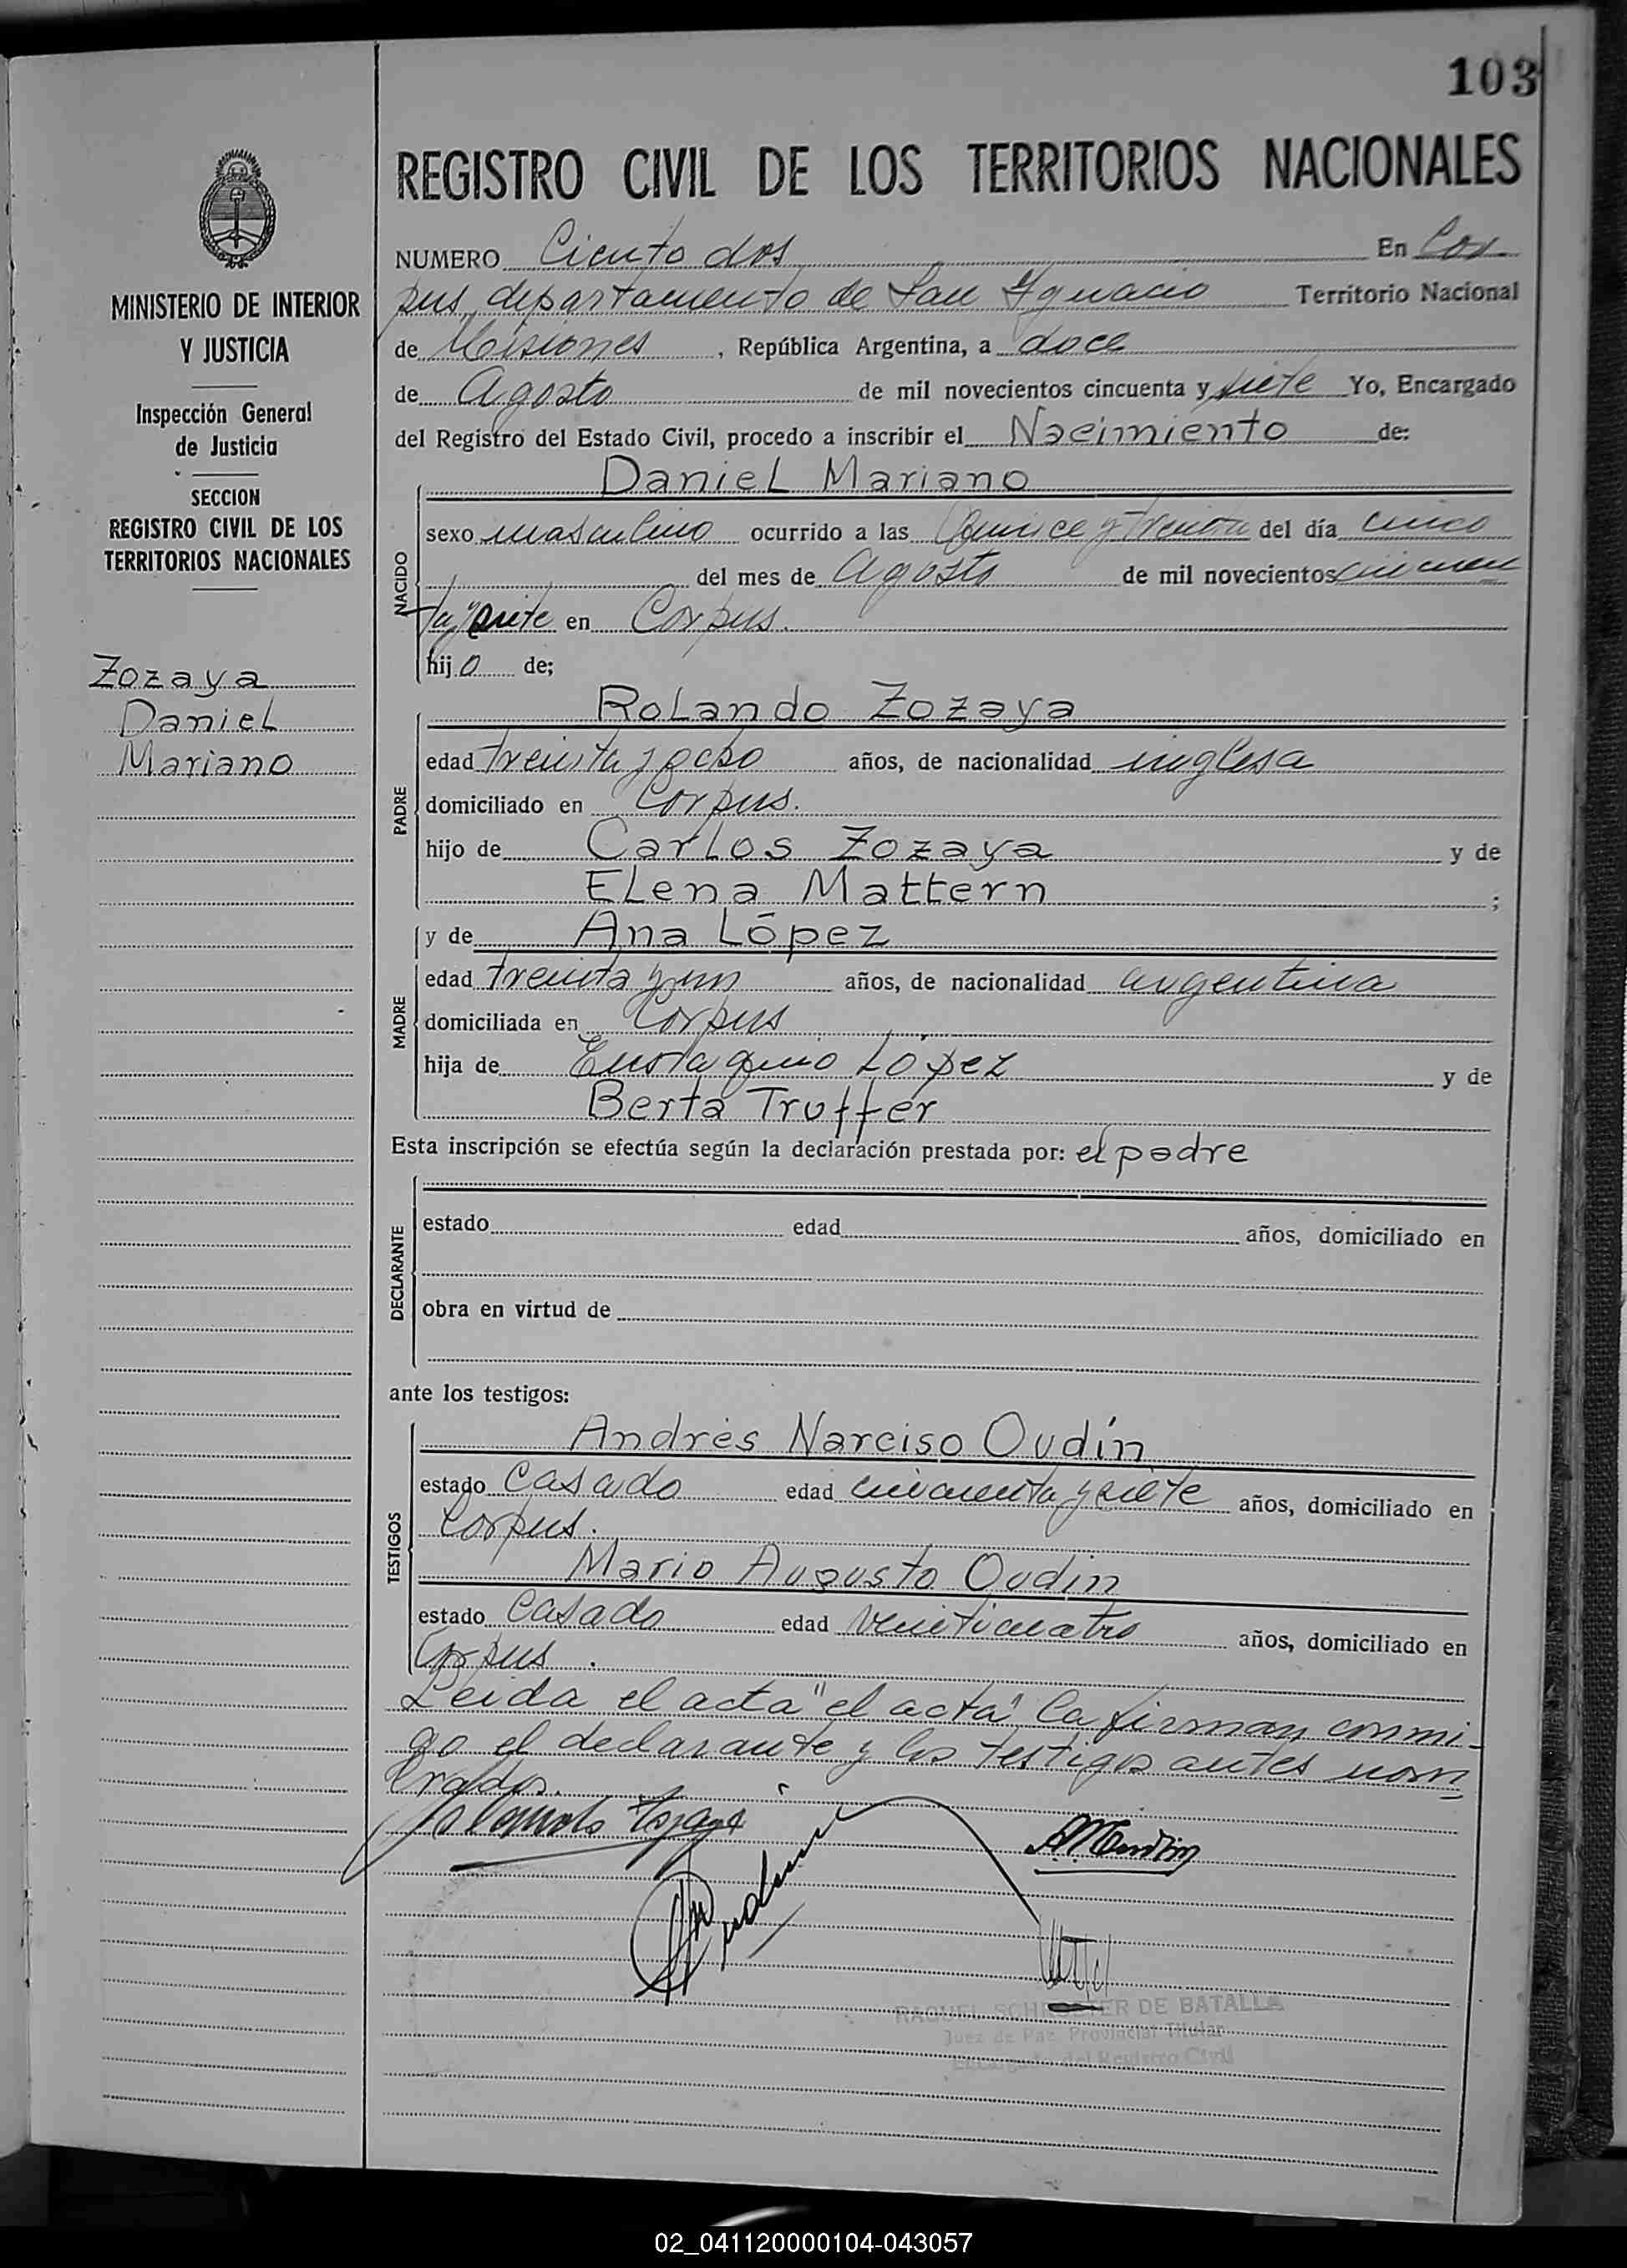 103
REGISTRO CIVIL DE LOS TERRITORIOS NACIONALES
MINISTERIO DE INTERIOR
Y JUSTICIA
Inspección General
de Justicia
SECCION
REGISTRO CIVIL DE LOS
TERRITORIOS NACIONALES
Zozaya
Daniel
Mariano
NUMERO Ciento dos En Cor
pus, departamento de San Ignacio Territorio Nacional
de Misiones, República Argentina, a doce
de Agosto de mil novecientos cincuenta y siete Yo, Encargado
del Registro del Estado Civil, procedo a inscribir el Nacimiento de:
Daniel Mariano
NACIDO
sexo masculino ocurrido a las Quince y treinta del día cinco
del mes de Agosto de mil novecientos cincuen
ta y siete en Corpus.
hijo de;
Rolando Zozaya
PADRE
edad treinta y ocho años, de nacionalidad inglesa
domiciliado en Corpus.
hijo de Carlos Zozaya y de
Elena Mattern ;
y de Ana López
MADRE
edad treinta y un años, de nacionalidad argentina
domiciliada en Corpus
hija de Eustaquio López y de
Berta Truffer
Esta inscripción se efectúa según la declaración prestada por: el padre
DECLARANTE
estado edad años, domiciliado en
obra en virtud de
ante los testigos:
Andrés Narciso Oudín
TESTIGOS
estado Casado edad cincuenta y siete años, domiciliado en
Corpus.
Mario Augusto Oudin
estado Casado edad veinticuatro años, domiciliado en
Corpus.
Leida el acta "el acta" la firman conmi-
go el declarante y los testigos antes nom
brados.
RAQUEL DE BATALLA
Juez de Paz Provincial Titular
Encargado del Registro Civil
02_041120000104-043057